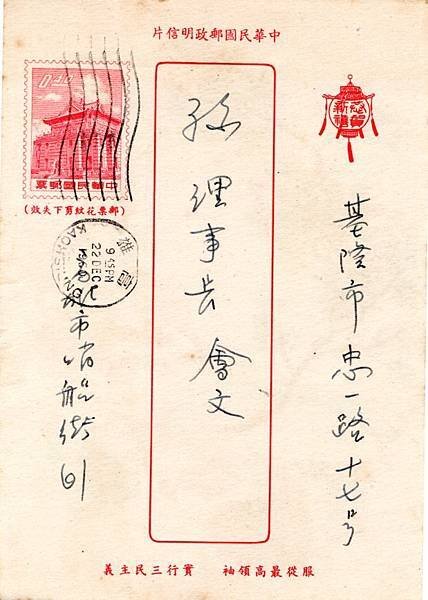 中華民國郵政明信片
恭賀新禧
基隆市忠一路十七号
孫理事長會文
0.40
中華民國郵票
(郵票花紋剪下失效)
高雄
9 45PM
22 DEC
市哨船街 61
服從最高領袖 實行三民主義